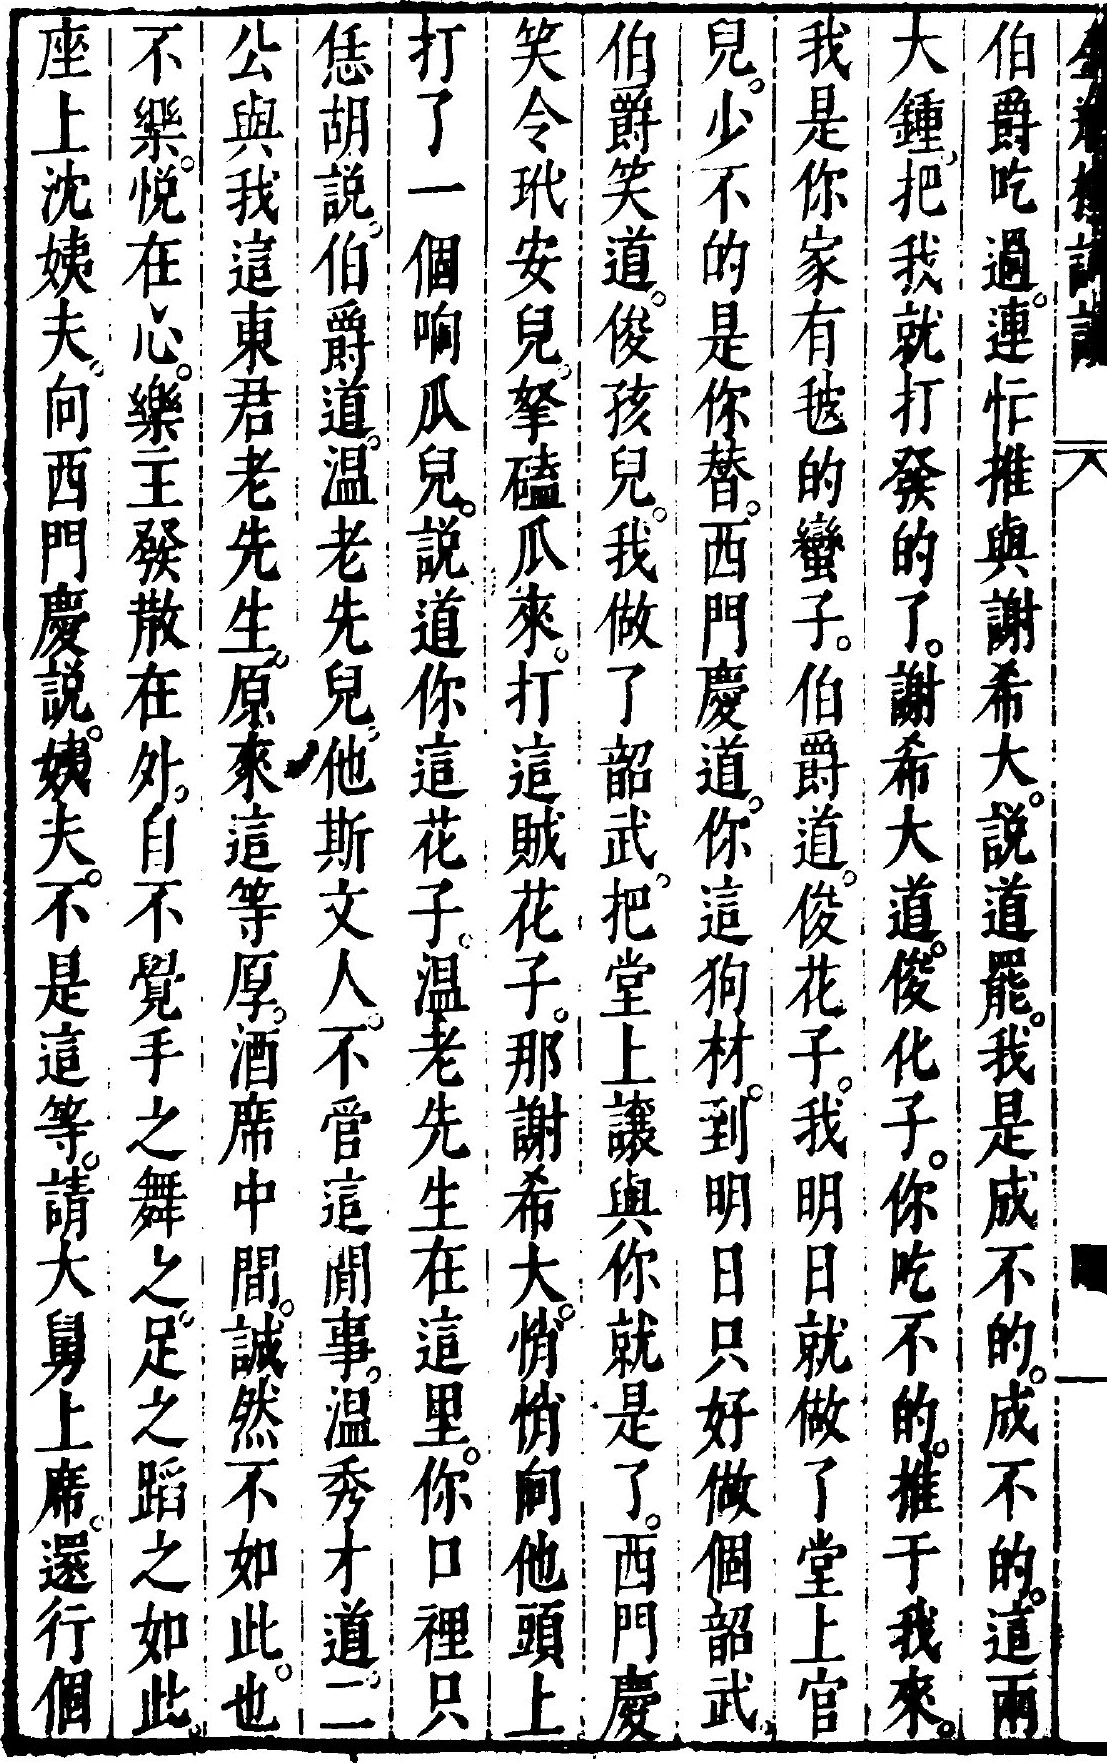 伯爵吃過。連忙推與謝希大。説道罷。我是成不的。成不的。這兩
大鍾。把我就打發的了。謝希大道。俊化子。你吃不的。推于我來。
我是你家有毴的蠻子。伯爵道。俊花子。我明日就做了堂上官
兒。少不的是你替。西門慶道。你這狗材。到明日只好做個韶武。
伯爵笑道。俊孩兒。我做了韶武。把堂上讓與你就是了。西門慶
笑令玳安兒。拏磕瓜來。打這賊花子。那謝希大。悄悄向他頭上
打了一個响瓜兒。説道你這花子。温老先生在這里。你口裡只
恁胡説。伯爵道。温老先兒。他斯文人。不管這閒事。温秀才道。二
公與我這東君老先生。原來這等厚。酒席中間。誠然不如此。也
不樂。悦在心。樂主發散在外。自不覺手之舞之。足之蹈之如此。
座上沈姨夫。向西門慶説。姨夫。不是這等。請大舅上席。還行個
八